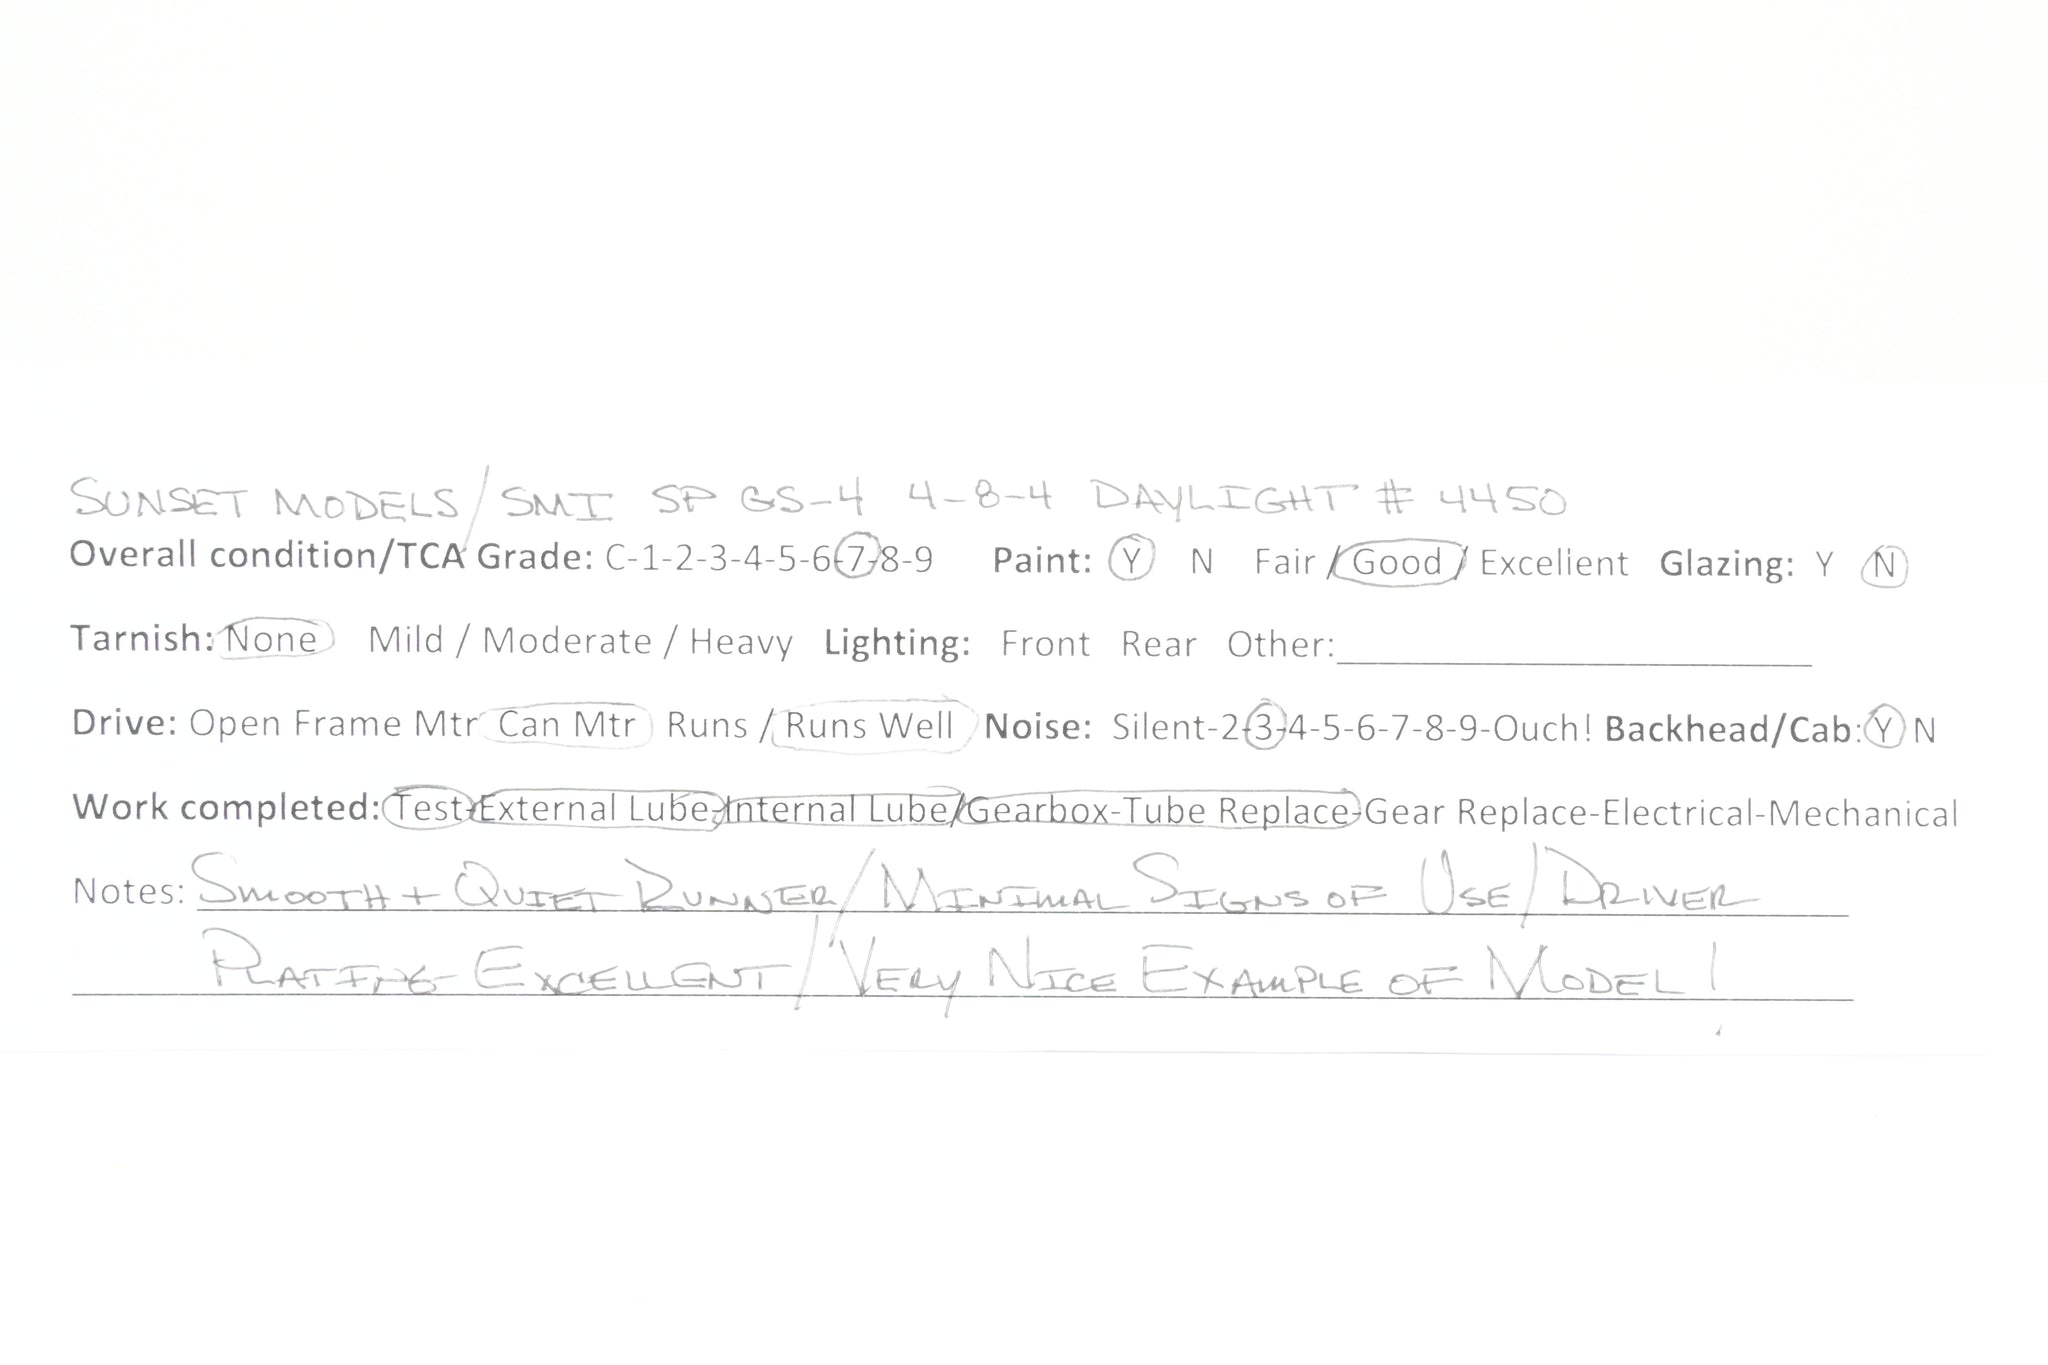 SUNSET MODELS/SMI SP GS-4 4-8-4 DAYLIGHT # 4450
Overall condition/TCA Grade: C-1-2-3-4-5-6-7-8-9 Paint: Y N Fair / Good / Excellent Glazing: Y N
Tarnish: None Mild / Moderate / Heavy Lighting: Front Rear Other:
Drive: Open Frame Mtr Can Mtr Runs / Runs Well Noise: Silent-2-3-4-5-6-7-8-9-Ouch! Backhead/Cab: Y N
Work completed: Test-External Lube-Internal Lube/Gearbox-Tube Replace-Gear Replace-Electrical-Mechanical
Notes: SMOOTH + QUIET RUNNER/MINIMAL SIGNS OF USE/DRIVER
PLATING EXCELLENT/VERY NICE EXAMPLE OF MODEL!